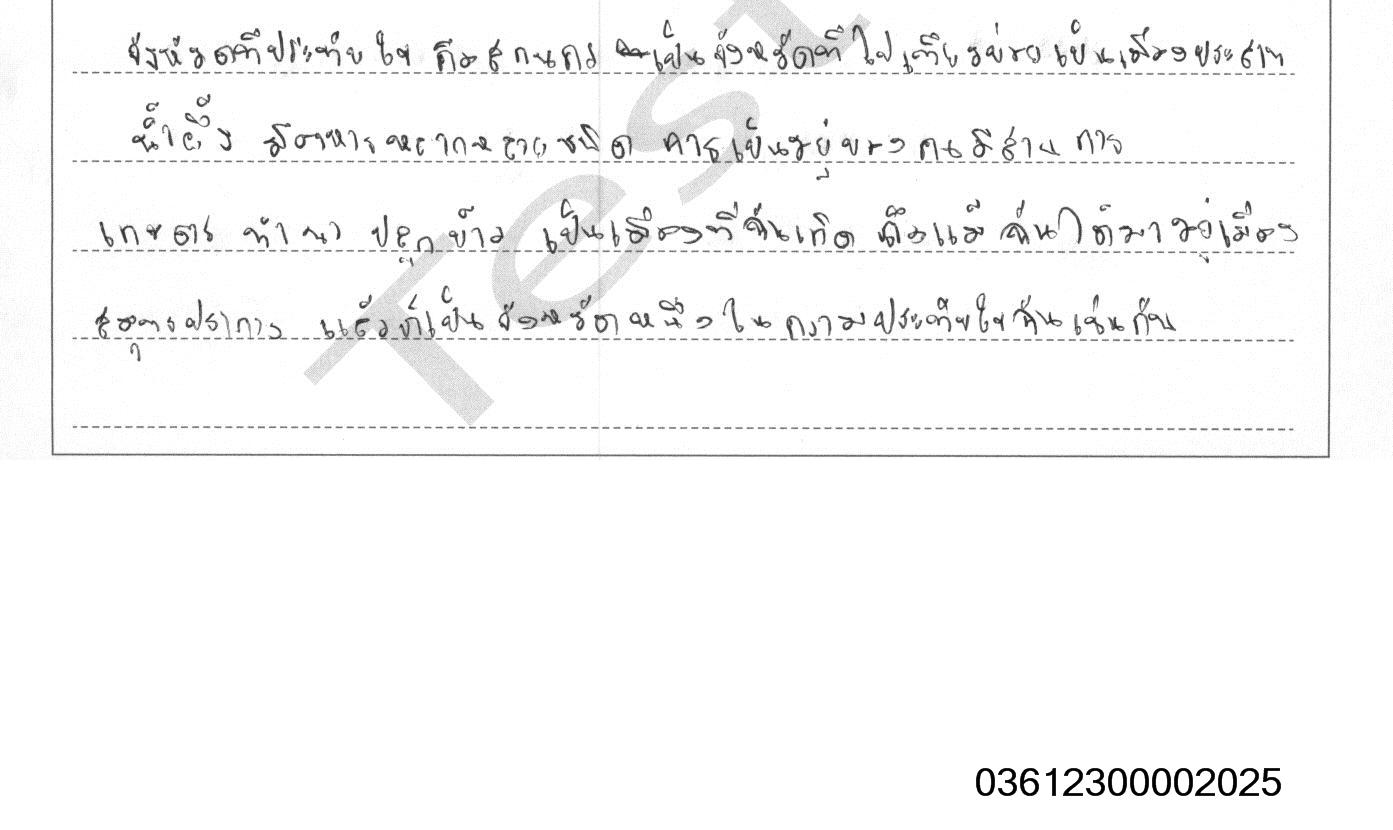 จังหวัดที่ประทับใจ คือ สกลนคร เป็นจังหวัดที่ไปเที่ยวบ่อย เป็นเมืองประสาท
น้ำผึ้ง มีอาหารหลากหลายชนิด การเป็นอยู่ของคนอีสาน การ
เกษตร ทำนา ปลูกข้าว เป็นเมืองที่ฉันเกิด ถึงแม้ฉันได้มาอยู่เมือง
สมุทรปราการ แล้วก็เป็นจังหวัดหนึ่งในความประทับใจฉันเช่นกัน
Test
03612300002025